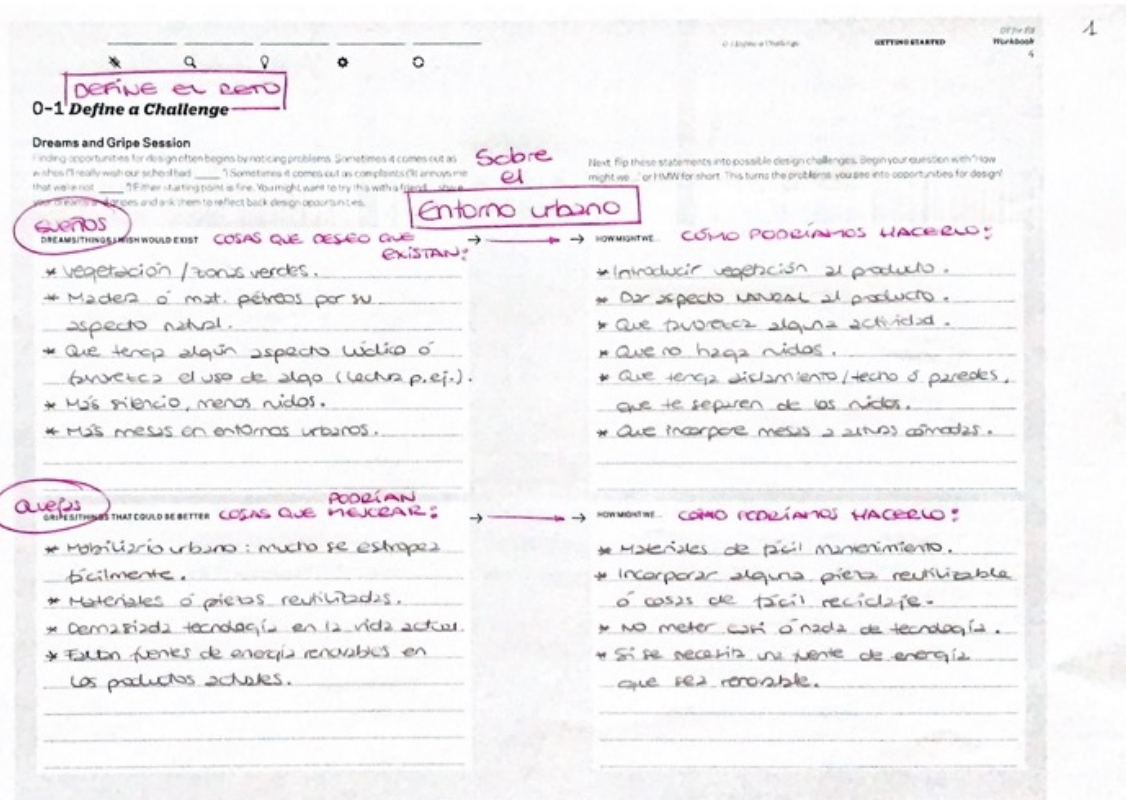 0-1 Define a Challenge
GETTING STARTED
DT for Ed
Workbook
4
1
DEFINE EL RETO
0-1 Define a Challenge
Dreams and Gripe Session
Finding opportunities for design often begins by noticing problems. Sometimes it comes out as
wishes ("I really wish our school had ____") Sometimes it comes out as complaints ("It annoys me
that we're not ____") Either starting point is fine. You might want to try this with a friend
your dreams and gripes and ask them to reflect back design opportunities.
Sobre
el
Entorno urbano
Next, flip these statements into possible design challenges. Begin your question with "How
might we..." or HMW for short. This turns the problems you see into opportunities for design!
SUEÑOS
DREAMS/THINGS I WISH WOULD EXIST COSAS QUE DESEO QUE
EXISTAN:
* Vegetación / zonas verdes.
* Madera ó mat. pétreos por su
aspecto natural.
* Que tenga algún aspecto lúdico ó
favorezca el uso de algo (lectura p.ej.).
* Más silencio, menos ruidos.
* Más mesas en entornos urbanos.
HOW MIGHT WE... CÓMO PODRÍAMOS HACERLO:
* Introducir vegetación al producto.
* Dar aspecto NATURAL al producto.
* Que favorezca alguna actividad.
* Que no haga ruidos.
* Que tenga aislamiento / techo ó paredes,
que te separen de los ruidos.
* Que incorpore mesas a alturas cómodas.
QUEJAS
GRIPES/THINGS THAT COULD BE BETTER COSAS QUE PODRÍAN
MEJORAR:
* Mobiliario urbano: mucho se estropea
fácilmente.
* Materiales ó piezas reutilizadas.
* Demasiada tecnología en la vida actual.
* Faltan fuentes de energía renovables en
los productos actuales.
HOW MIGHT WE... CÓMO PODRÍAMOS HACERLO:
* Materiales de fácil mantenimiento.
* Incorporar alguna pieza reutilizable
ó cosas de fácil reciclaje.
* NO meter casi ó nada de tecnología.
* Si se necesita una fuente de energía
que sea renovable.